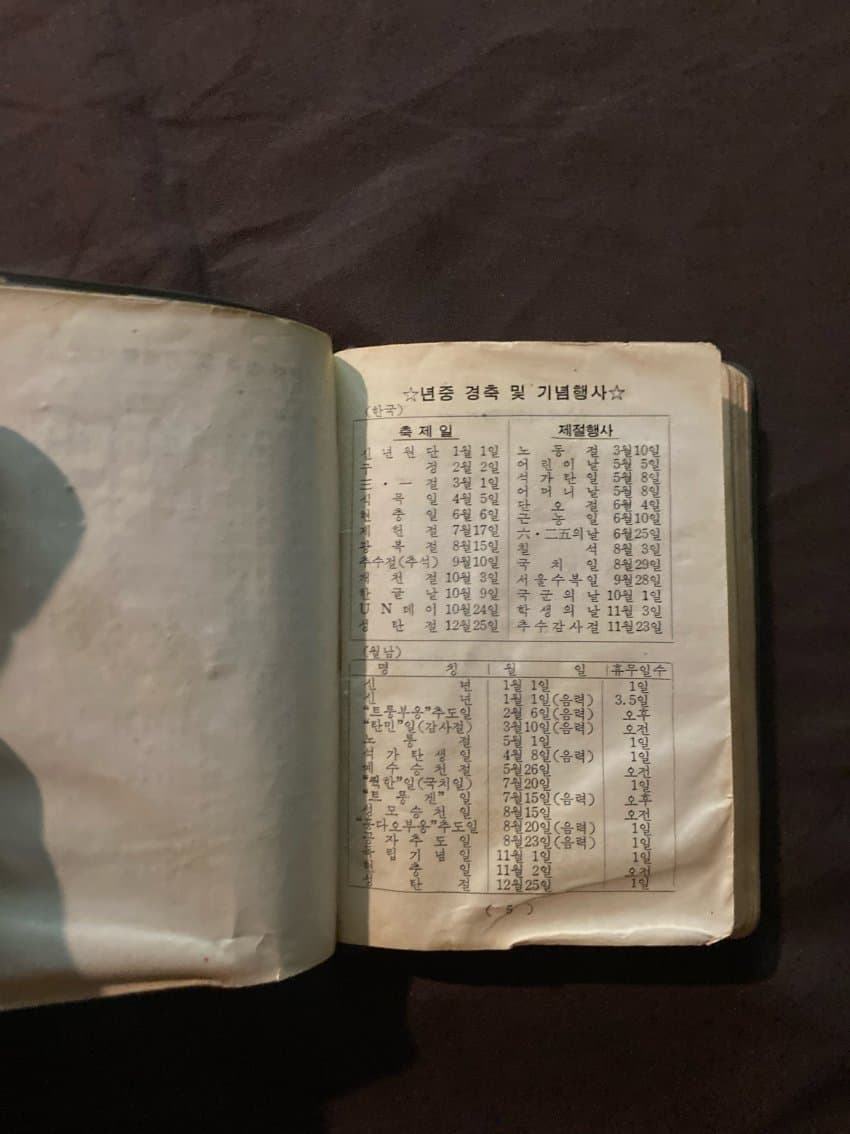 ☆년중 경축 및 기념행사☆
(한국)
축 제 일
신 년 원 단 1월 1일
구 정 2월 2일
三・一 절 3월 1일
식 목 일 4월 5일
현 충 일 6월 6일
제 헌 절 7월17일
광 복 절 8월15일
추수절(추석) 9월10일
개 천 절 10월 3일
한 글 날 10월 9일
U N 데이 10월24일
성 탄 절 12월25일
제절행사
노 동 절 3월10일
어 린 이 날 5월 5일
석 가 탄 일 5월 8일
어 머 니 날 5월 8일
단 오 절 6월 4일
근 농 일 6월10일
六・二五의날 6월25일
칠 석 8월 3일
국 치 일 8월29일
서울수복일 9월28일
국 군 의 날 10월 1일
학 생 의 날 11월 3일
추수감사절 11월23일
(월남)
명 칭 월 일 휴무일수
신 년 1월 1일 1일
신 년 1월 1일(음력) 3.5일
"트롱부옹"추도일 2월 6일(음력) 오후
"탄민"일(감사절) 3월10일(음력) 오전
노 동 절 5월 1일 1일
석 가 탄 생 일 4월 8일(음력) 1일
예 수 승 천 절 5월26일 오전
일(국치일) 7월20일 1일
"트 룽 젠" 일 7월15일(음력) 오후
성 모 승 천 일 8월15일 오전
추도일 8월20일(음력) 1일
공 자 추 도 일 8월23일(음력) 1일
독 립 기 념 일 11월 1일 1일
현 충 일 11월 2일 오전
성 탄 절 12월25일 1일
( 5 )